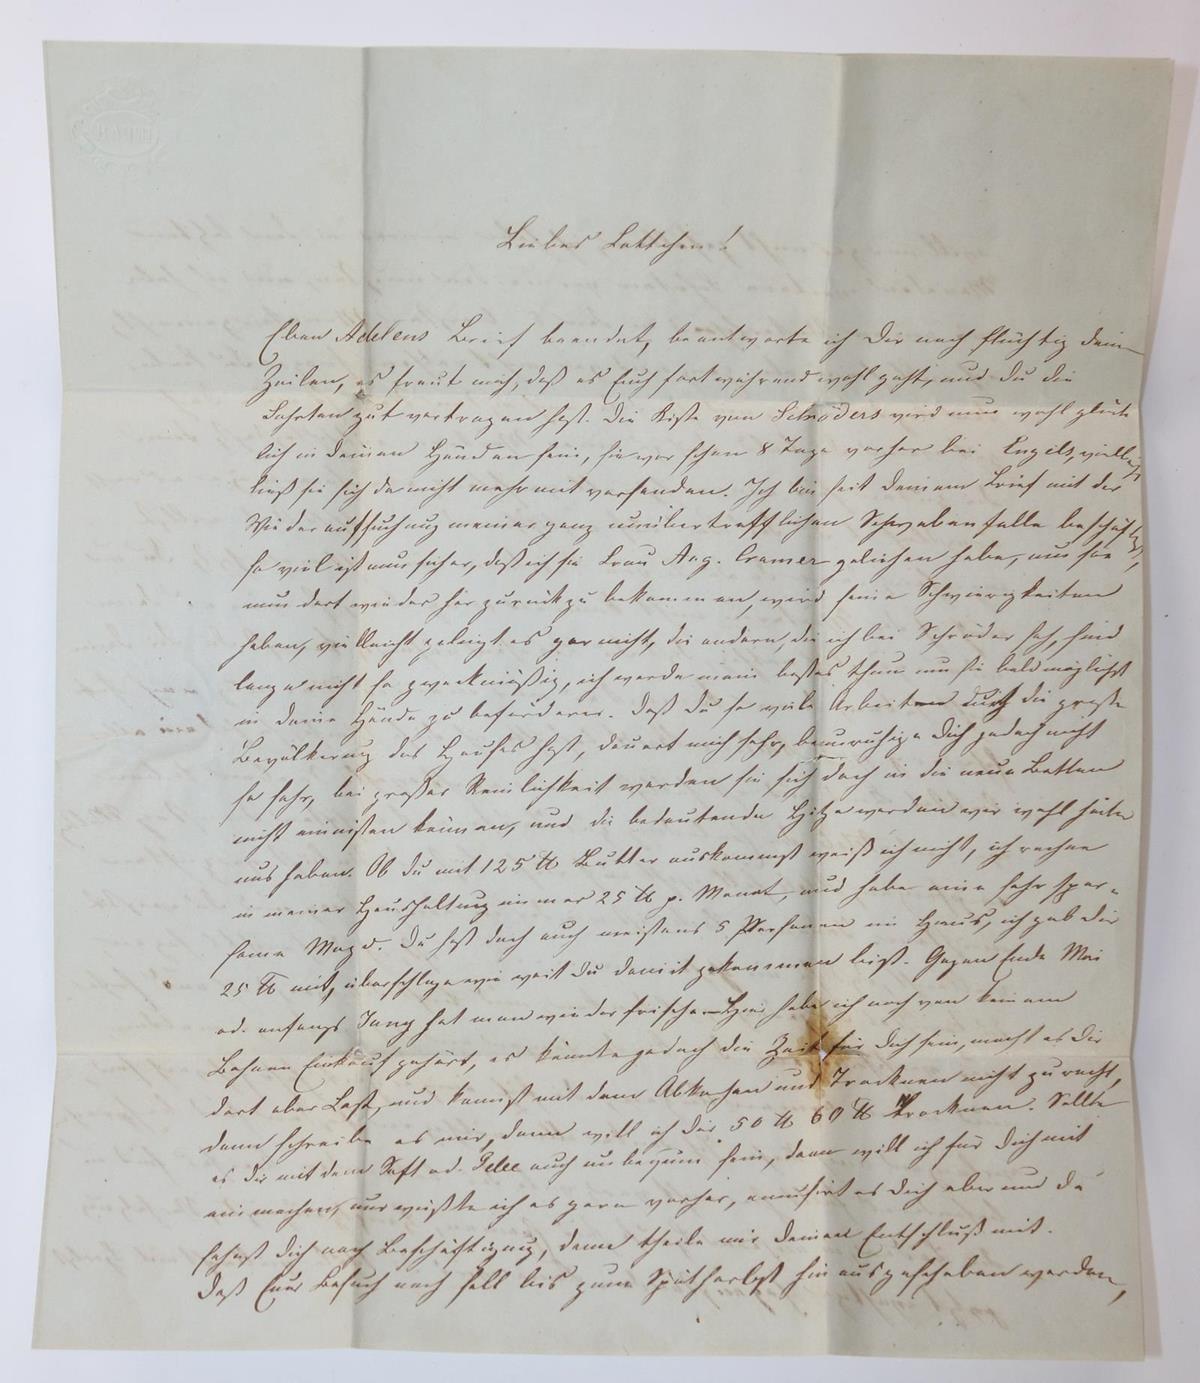 Liebes Lottchen!
Eben Adelens Brief beendet, beantworte ich Dir noch flüchtig dein
Zeilen, es freut mich, daß es Euch fortwährend wohl geht, und Du die
Fahrten gut vertragen hast. Die Kiste von Schröders wird nun wohl glück
lich in deinen Händen sein, sie war schon 8 Tage vorher bei Engels, vielleicht
ließ sie sich da nicht mehr mit versenden. Ich bin seit deinem Brief mit der
Wiederaufsuchung meiner ganz unübertrefflichen Schwabenfalle beschäftigt,
so viel ist nun sicher, daß ich sie Frau Aug. Cramer geliehen habe, um sie
nun dort wieder her zurück zu bekommen, wird seine Schwierigkeiten
haben, vielleicht gelingt es gar nicht, die andern, die ich bei Schröder sah, sind
lange nicht so zweckmäßig, ich werde mein bestes thun um sie bald möglichst
in deine Hände zu befördern. Daß Du so viele Arbeiten durch die große
Bevölkerung des Hauses hast, dauert mich sehr, beunruhige Dich jedoch nicht
so sehr, bei großer Reinlichkeit werden sie sich doch in die neuen Betten
nicht einnisten können, und die bedeutende Hitze werden wir wohl hinter
uns haben. Ob Du mit 125 ℔ Butter auskommst weiß ich nicht, ich rechne
in meiner Haushaltung immer 25 ℔ p. Monat, und habe eine sehr spar-
same Magd. Du hast doch auch meistens 5 Personen im Haus, ich gab dir
25 ℔ mit, überschlage wie weit Du damit gekommen bist. Gegen Ende Mai
od. anfangs Juny hat man wieder frische. Hier habe ich noch von keinem
Bohnen Einkauf gehört, es könnte jedoch die Zeit für Dich sein, macht es dir
dort aber Last, und kannst mit dem Abkochen und Trocknen nicht zurecht,
dann schreibe es mir, dann will ich dir 50 ℔ 60 ℔ trocknen. Sollte
es dir mit dem Saft od. Gelee auch unbequem sein, dann will ich für Dich mit
einmachen, nur wüßte ich es gern vorher, amüsirt es Dich aber und du
sehnst dich nach Beschäftigung, dann theile mir deinen Entschluß mit.
Daß Euer Besuch noch soll bis zum Spätherbst hinausgeschoben werden,